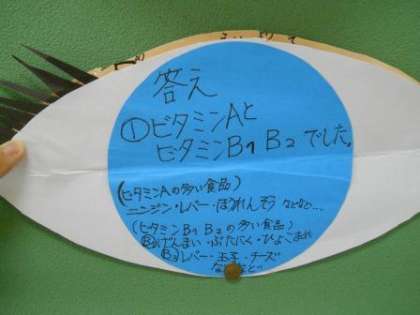 答え
①ビタミンAと
ビタミンB1 B2 でした。
(ビタミンAの多い食品)
ニンジン・レバー・ほうれんそう などなど…
(ビタミンB1 B2の多い食品)
B1げんまい・ぶたにく・ひよこまめ
B2レバー・玉子・チーズ
などなど…